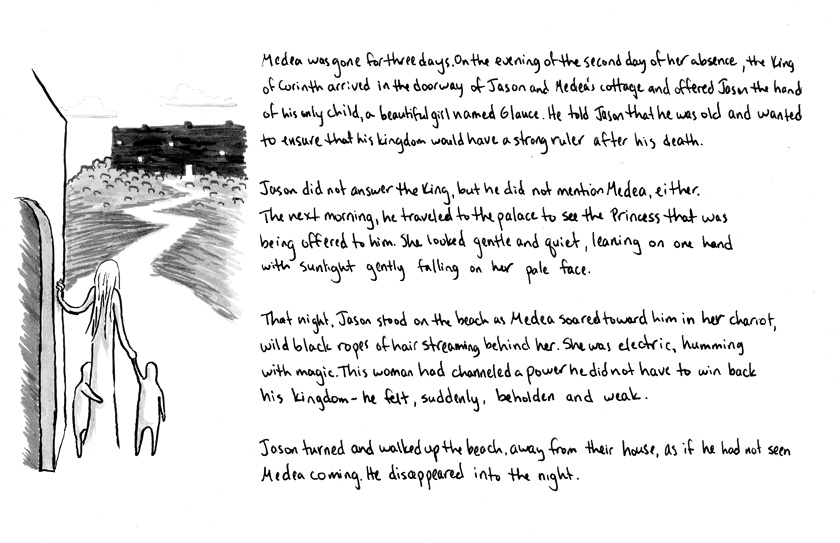 Medea was gone for three days. On the evening of the second day of her absence, the King
of Corinth arrived in the doorway of Jason and Medea's cottage and offered Jason the hand
of his only child, a beautiful girl named Glauce. He told Jason that he was old and wanted
to ensure that his kingdom would have a strong ruler after his death.
Jason did not answer the King, but he did not mention Medea, either.
The next morning, he traveled to the palace to see the Princess that was
being offered to him. She looked gentle and quiet, leaning on one hand
with sunlight gently falling on her pale face.
That night, Jason stood on the beach as Medea soared toward him in her chariot,
wild black ropes of hair streaming behind her. She was electric, humming
with magic. This woman had channeled a power he did not have to win back
his kingdom - he felt, suddenly, beholden and weak.
Jason turned and walked up the beach, away from their house, as if he had not seen
Medea coming. He disappeared into the night.